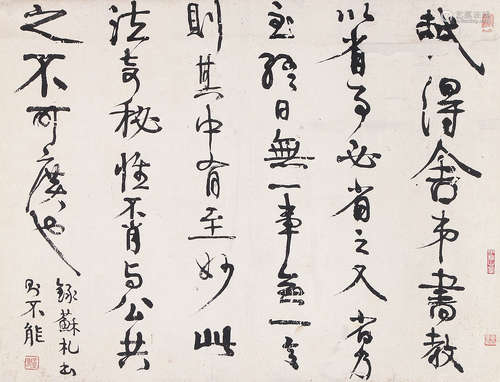 軾得舍弟書教
以省事必省之又省乃
至終日無一事無一言
則其中有至妙此
法奇秘惟不肖与公共
之不可廣也
錄蘇札
不能